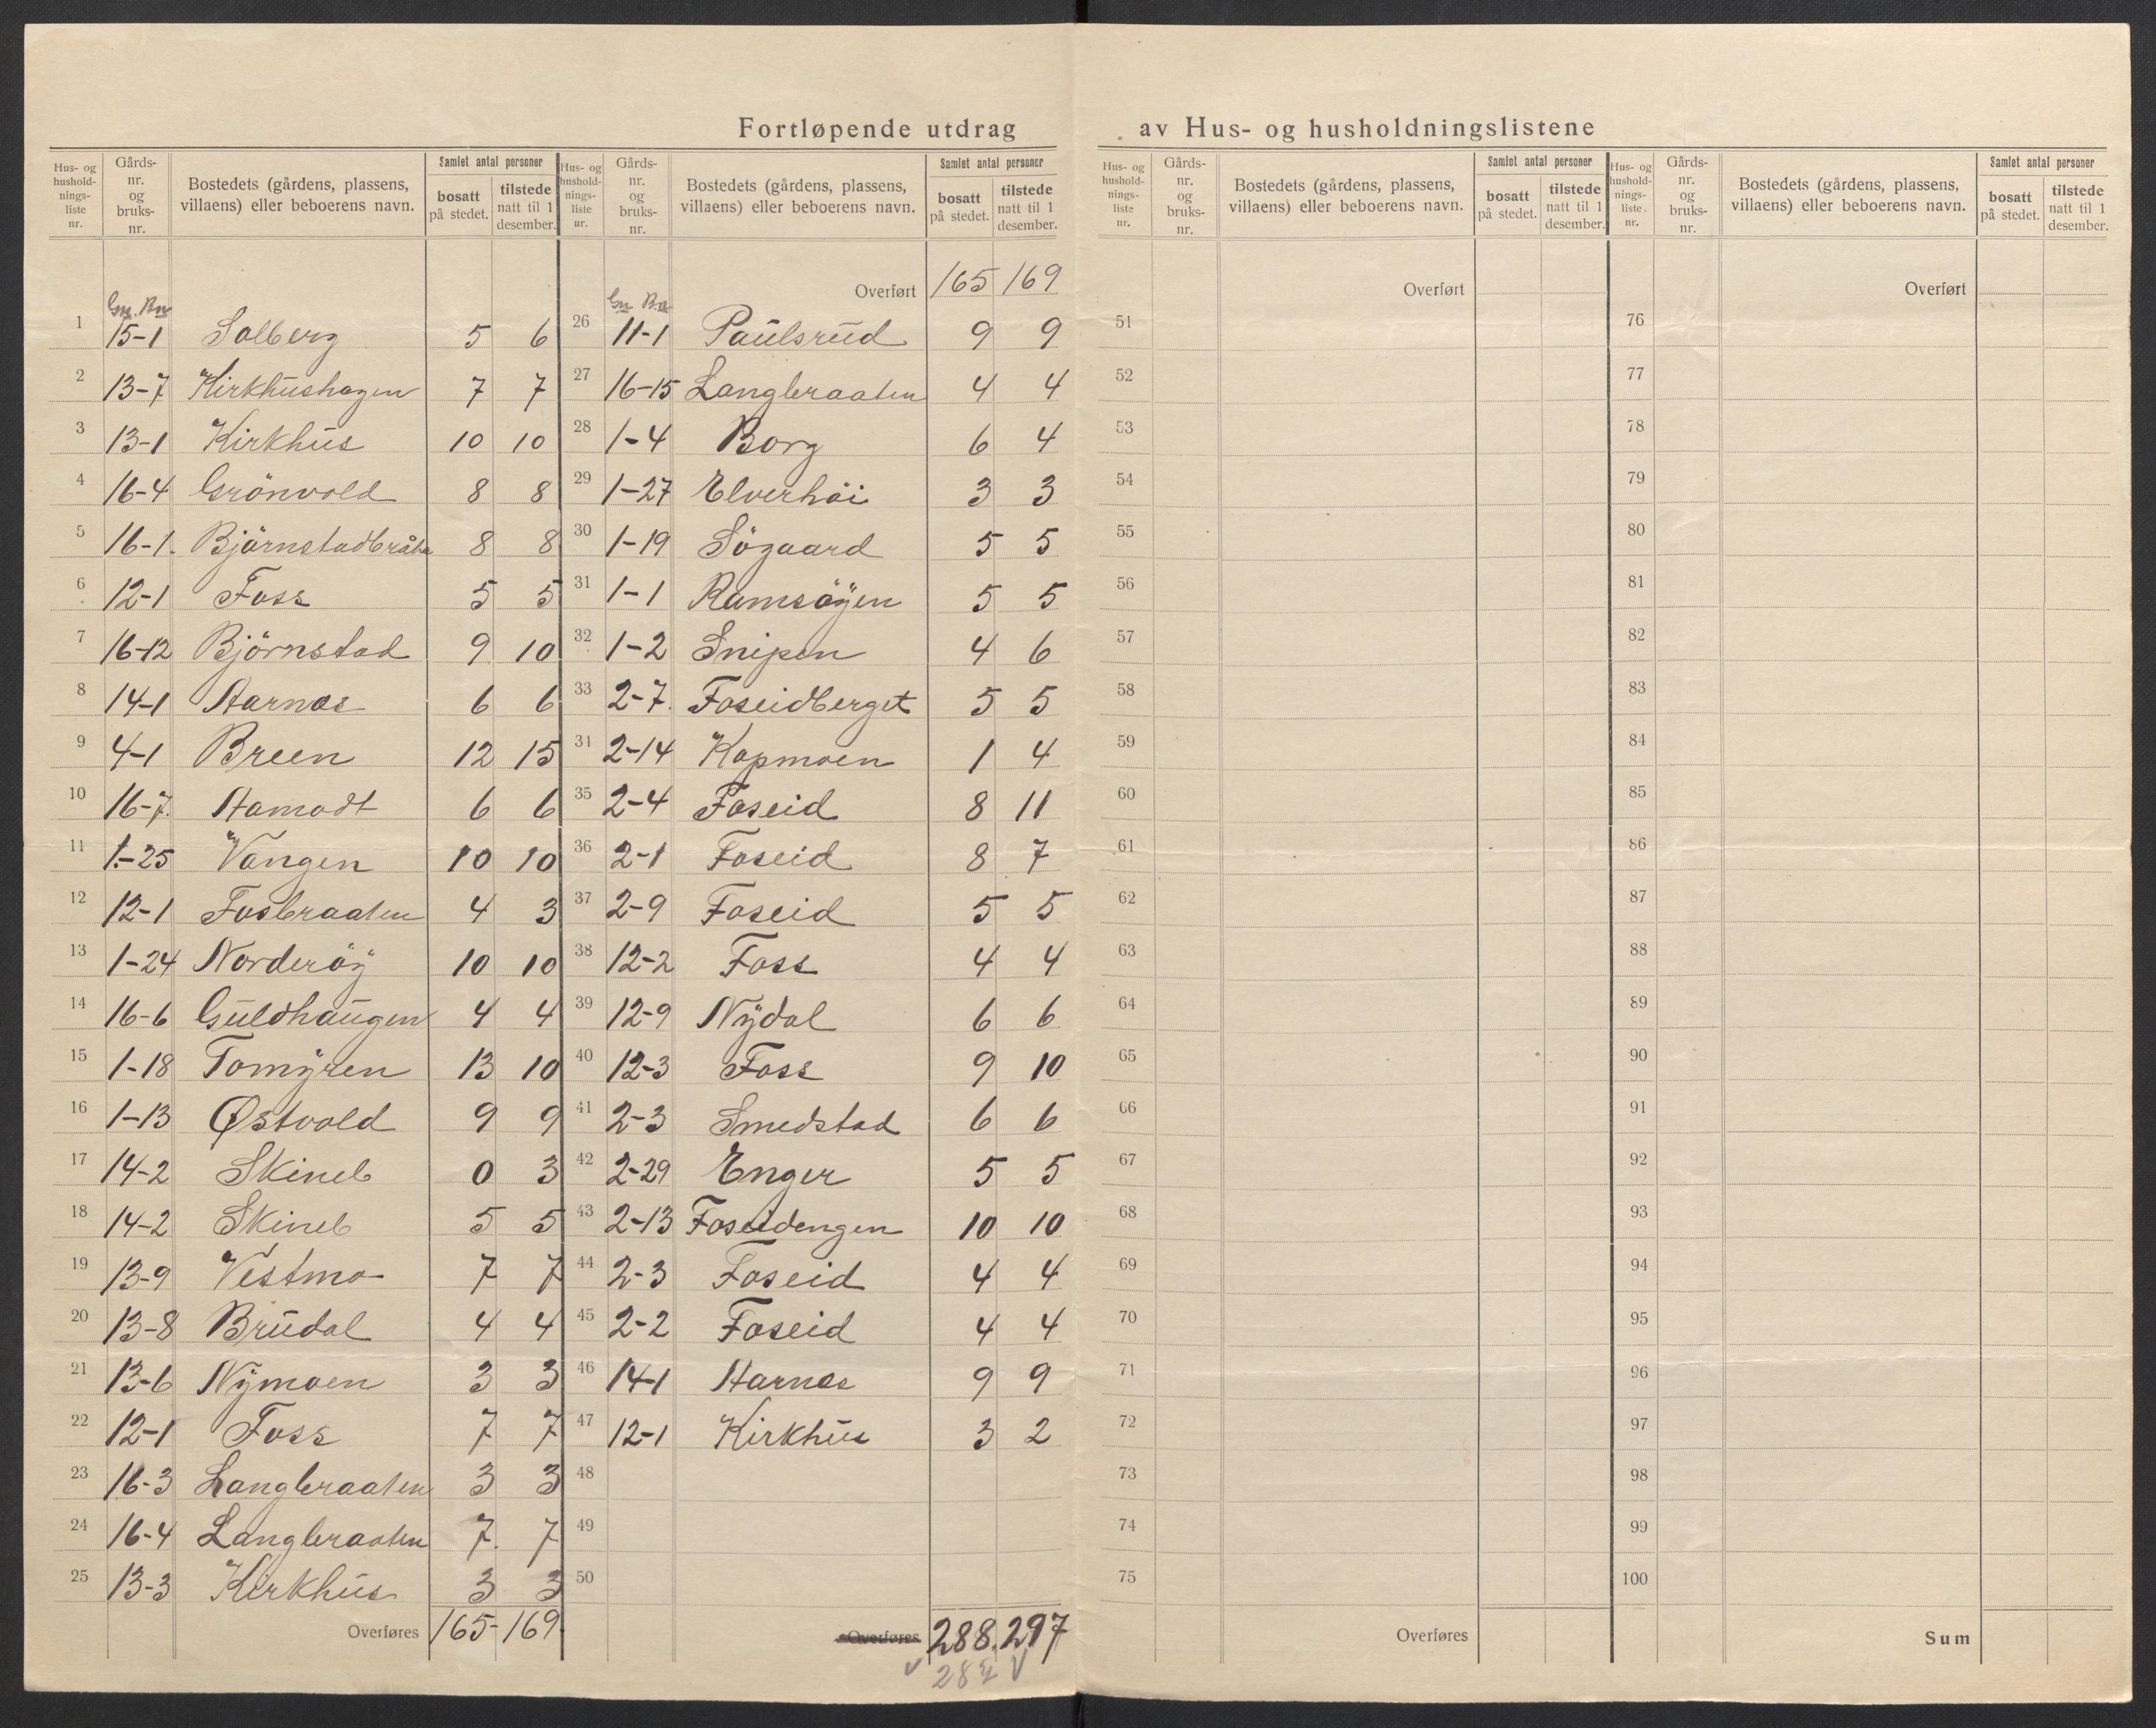 Fortløpende utdrag av Hus- og husholdningslistene
Hus- og husholdnings-liste nr. Gårds-nr. og bruks-nr. Bostedets (gårdens, plassens, villaens) eller beboerens navn. Samlet antal personer bosatt på stedet. tilstede natt til 1 desember.
Gn. Bn
1 15-1 Solberg 5 6
2 13-7 Kirkhushagen 7 7
3 13-1 Kirkhus 10 10
4 16-4 Grönvold 8 8
5 16-1. Björnstadbråten 8 8
6 12-1 Foss 5 5
7 16-12 Björnstad 9 10
8 14-1 Aarnes 6 6
9 4-1 Breen 12 15
10 16-7. Aamodt 6 6
11 1-25 Vangen 10 10
12 12-1 Fosbraaten 4 3
13 1-24 Norderöy 10 10
14 16-6 Guldhaugen 4 4
15 1-18 Tomyren 13 10
16 1-13 Østvold 9 9
17 14-2 Skineb 0 3
18 14-2 Skineb 5 5
19 13-9 Vestmo 7 7
20 13-8 Brudal 4 4
21 13-6 Nymoen 3 3
22 12-1 Foss 7 7
23 16-3 Langbraaten 3 3
24 16-4 Langbraaten 7. 7
25 13-3 Kirkhus 3 3
Overføres 165-169.
Hus- og husholdnings-liste nr. Gårds-nr. og bruks-nr. Bostedets (gårdens, plassens, villaens) eller beboerens navn. Samlet antal personer bosatt på stedet. tilstede natt til 1 desember.
Overført 165 169
Gn Bn
26 11-1 Paulsrud 9 9
27 16-15 Langbraaten 4 4
28 1-4 Borg 6 4
29 1-27 Elverhöi 3 3
30 1-19 Sögaard 5 5
31 1-1 Ramsöyen 5 5
32 1-2 Snipen 4 6
33 2-7. Foseidberget 5 5
34 2-14 Kopmoen 1 4
35 2-4 Foseid 8 11
36 2-1 Foseid 8 7
37 2-9 Foseid 5 5
38 12-2 Foss 4 4
39 12-9 Nydal 6 6
40 12-3 Foss 9 10
41 2-3 Smedstad 6 6
42 2-29 Enger 5 5
43 2-13 Foseidengen 10 10
44 2-3 Foseid 4 4
45 2-2 Foseid 4 4
46 14-1 Aarnes 9 9
47 12-1 Kirkhus 3 2
48
49
50
Overføres 288. 297
Hus- og husholdnings-liste nr. Gårds-nr. og bruks-nr. Bostedets (gårdens, plassens, villaens) eller beboerens navn. Samlet antal personer bosatt på stedet. tilstede natt til 1 desember.
Overført
51
52
53
54
55
56
57
58
59
60
61
62
63
64
65
66
67
68
69
70
71
72
73
74
75
Overføres
Hus- og husholdnings-liste. nr. Gårds-nr. og bruks-nr. Bostedets (gårdens, plassens, villaens) eller beboerens navn. Samlet antal personer bosatt på stedet. tilstede natt til 1 desember.
Overført
76
77
78
79
80
81
82
83
84
85
86
87
88
89
90
91
92
93
94
95
96
97
98
99
100
Sum